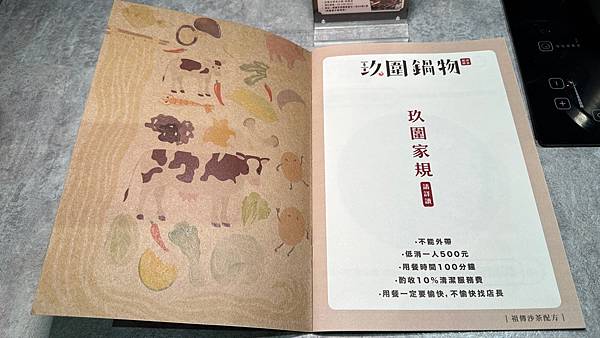 玖圍鍋物
玖圍家規
請詳讀
·不能外帶
·低消一人500元
·用餐時間100分鐘
·酌收10%清潔服務費
·用餐一定要愉快,不愉快找店長
| 祖傳沙茶配方 |